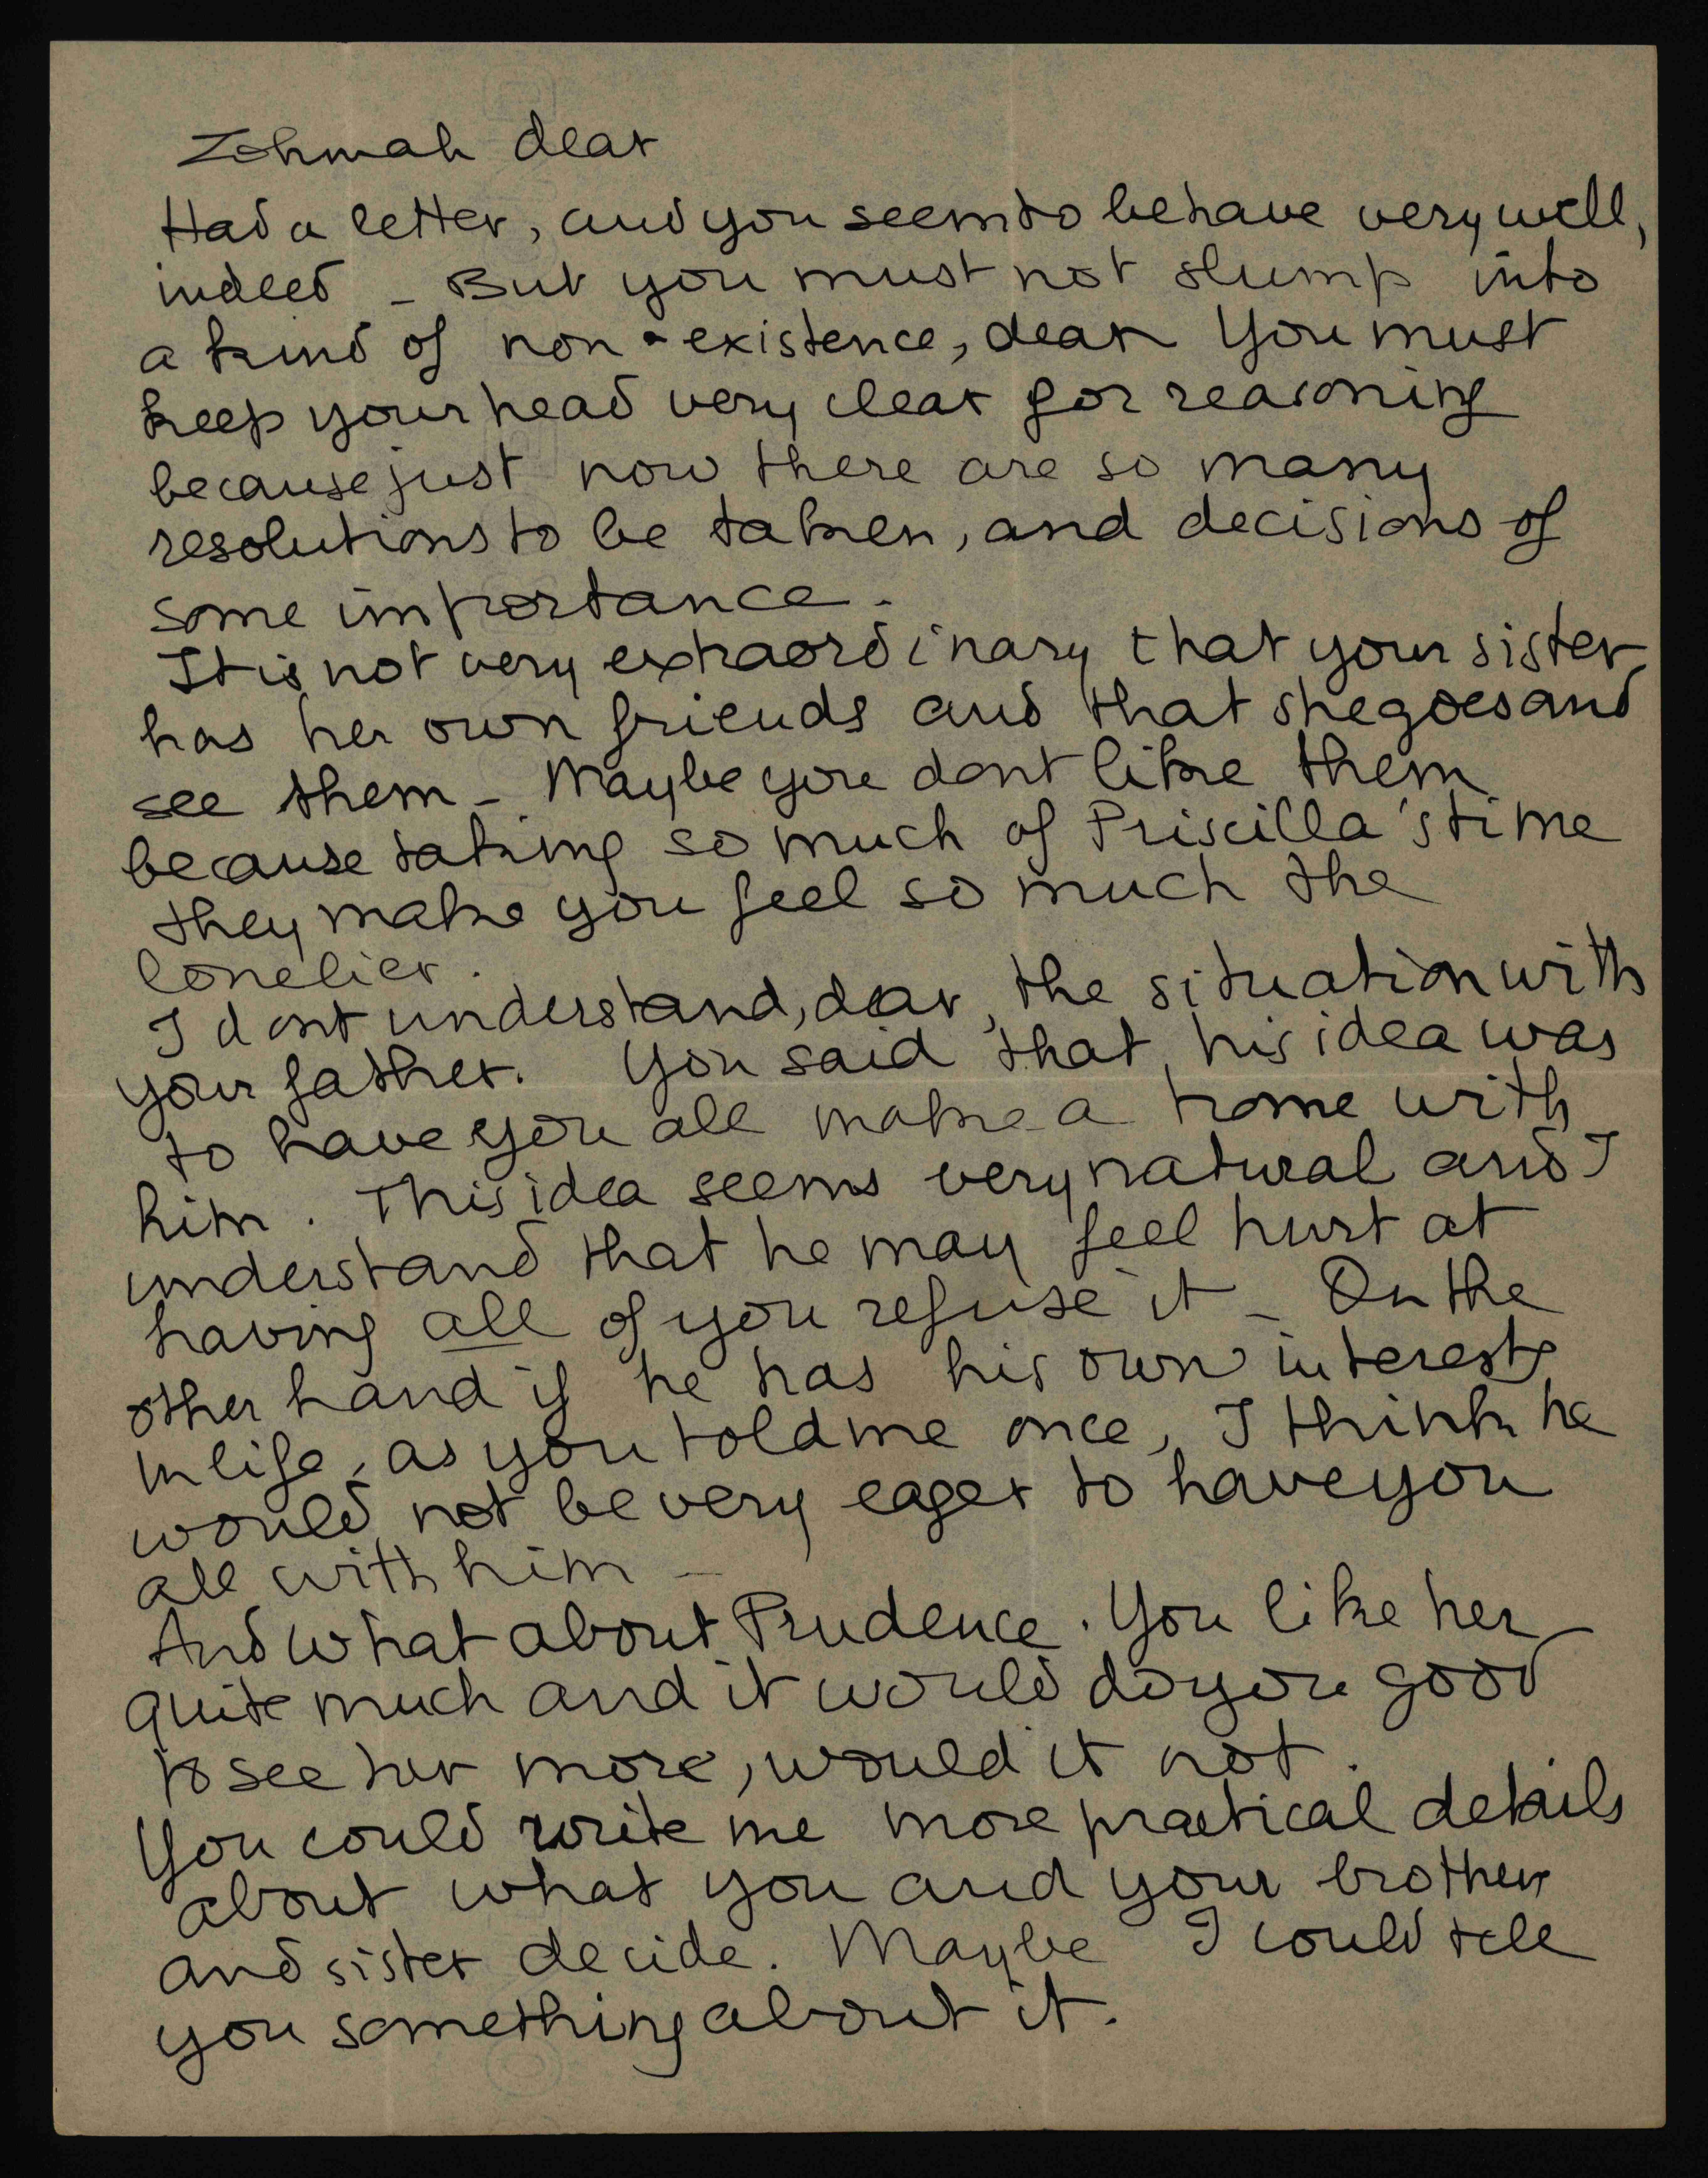 Zohmah dear
Had a letter, and you seem to behave very well,
indeed - But you must not slump into
a kind of non-existence, dear You must
keep your head very clear for reasoning
because just now there are so many
resolutions to be taken, and decisions of
some importance.
It is not very extraordinary that your sister
has her own friends and that she goes and
see them - Maybe you dont like them
because taking so much of Priscilla's time
they make you feel so much the
lonelier.
I dont understand, dear, the situation with
your father. You said that his idea was
to have you all make a home with
him. This idea seems very natural and I
understand that he may feel hurt at
having all of you refuse it - On the
other hand if he has his own interests
in life, as you told me once, I think he
would not be very eager to have you
all with him -
And what about Prudence. You like her
quite much and it would do you good
to see her more, would it not.
You could write me more practical details
about what you and your brother
and sister decide. Maybe I could tell
you something about it.